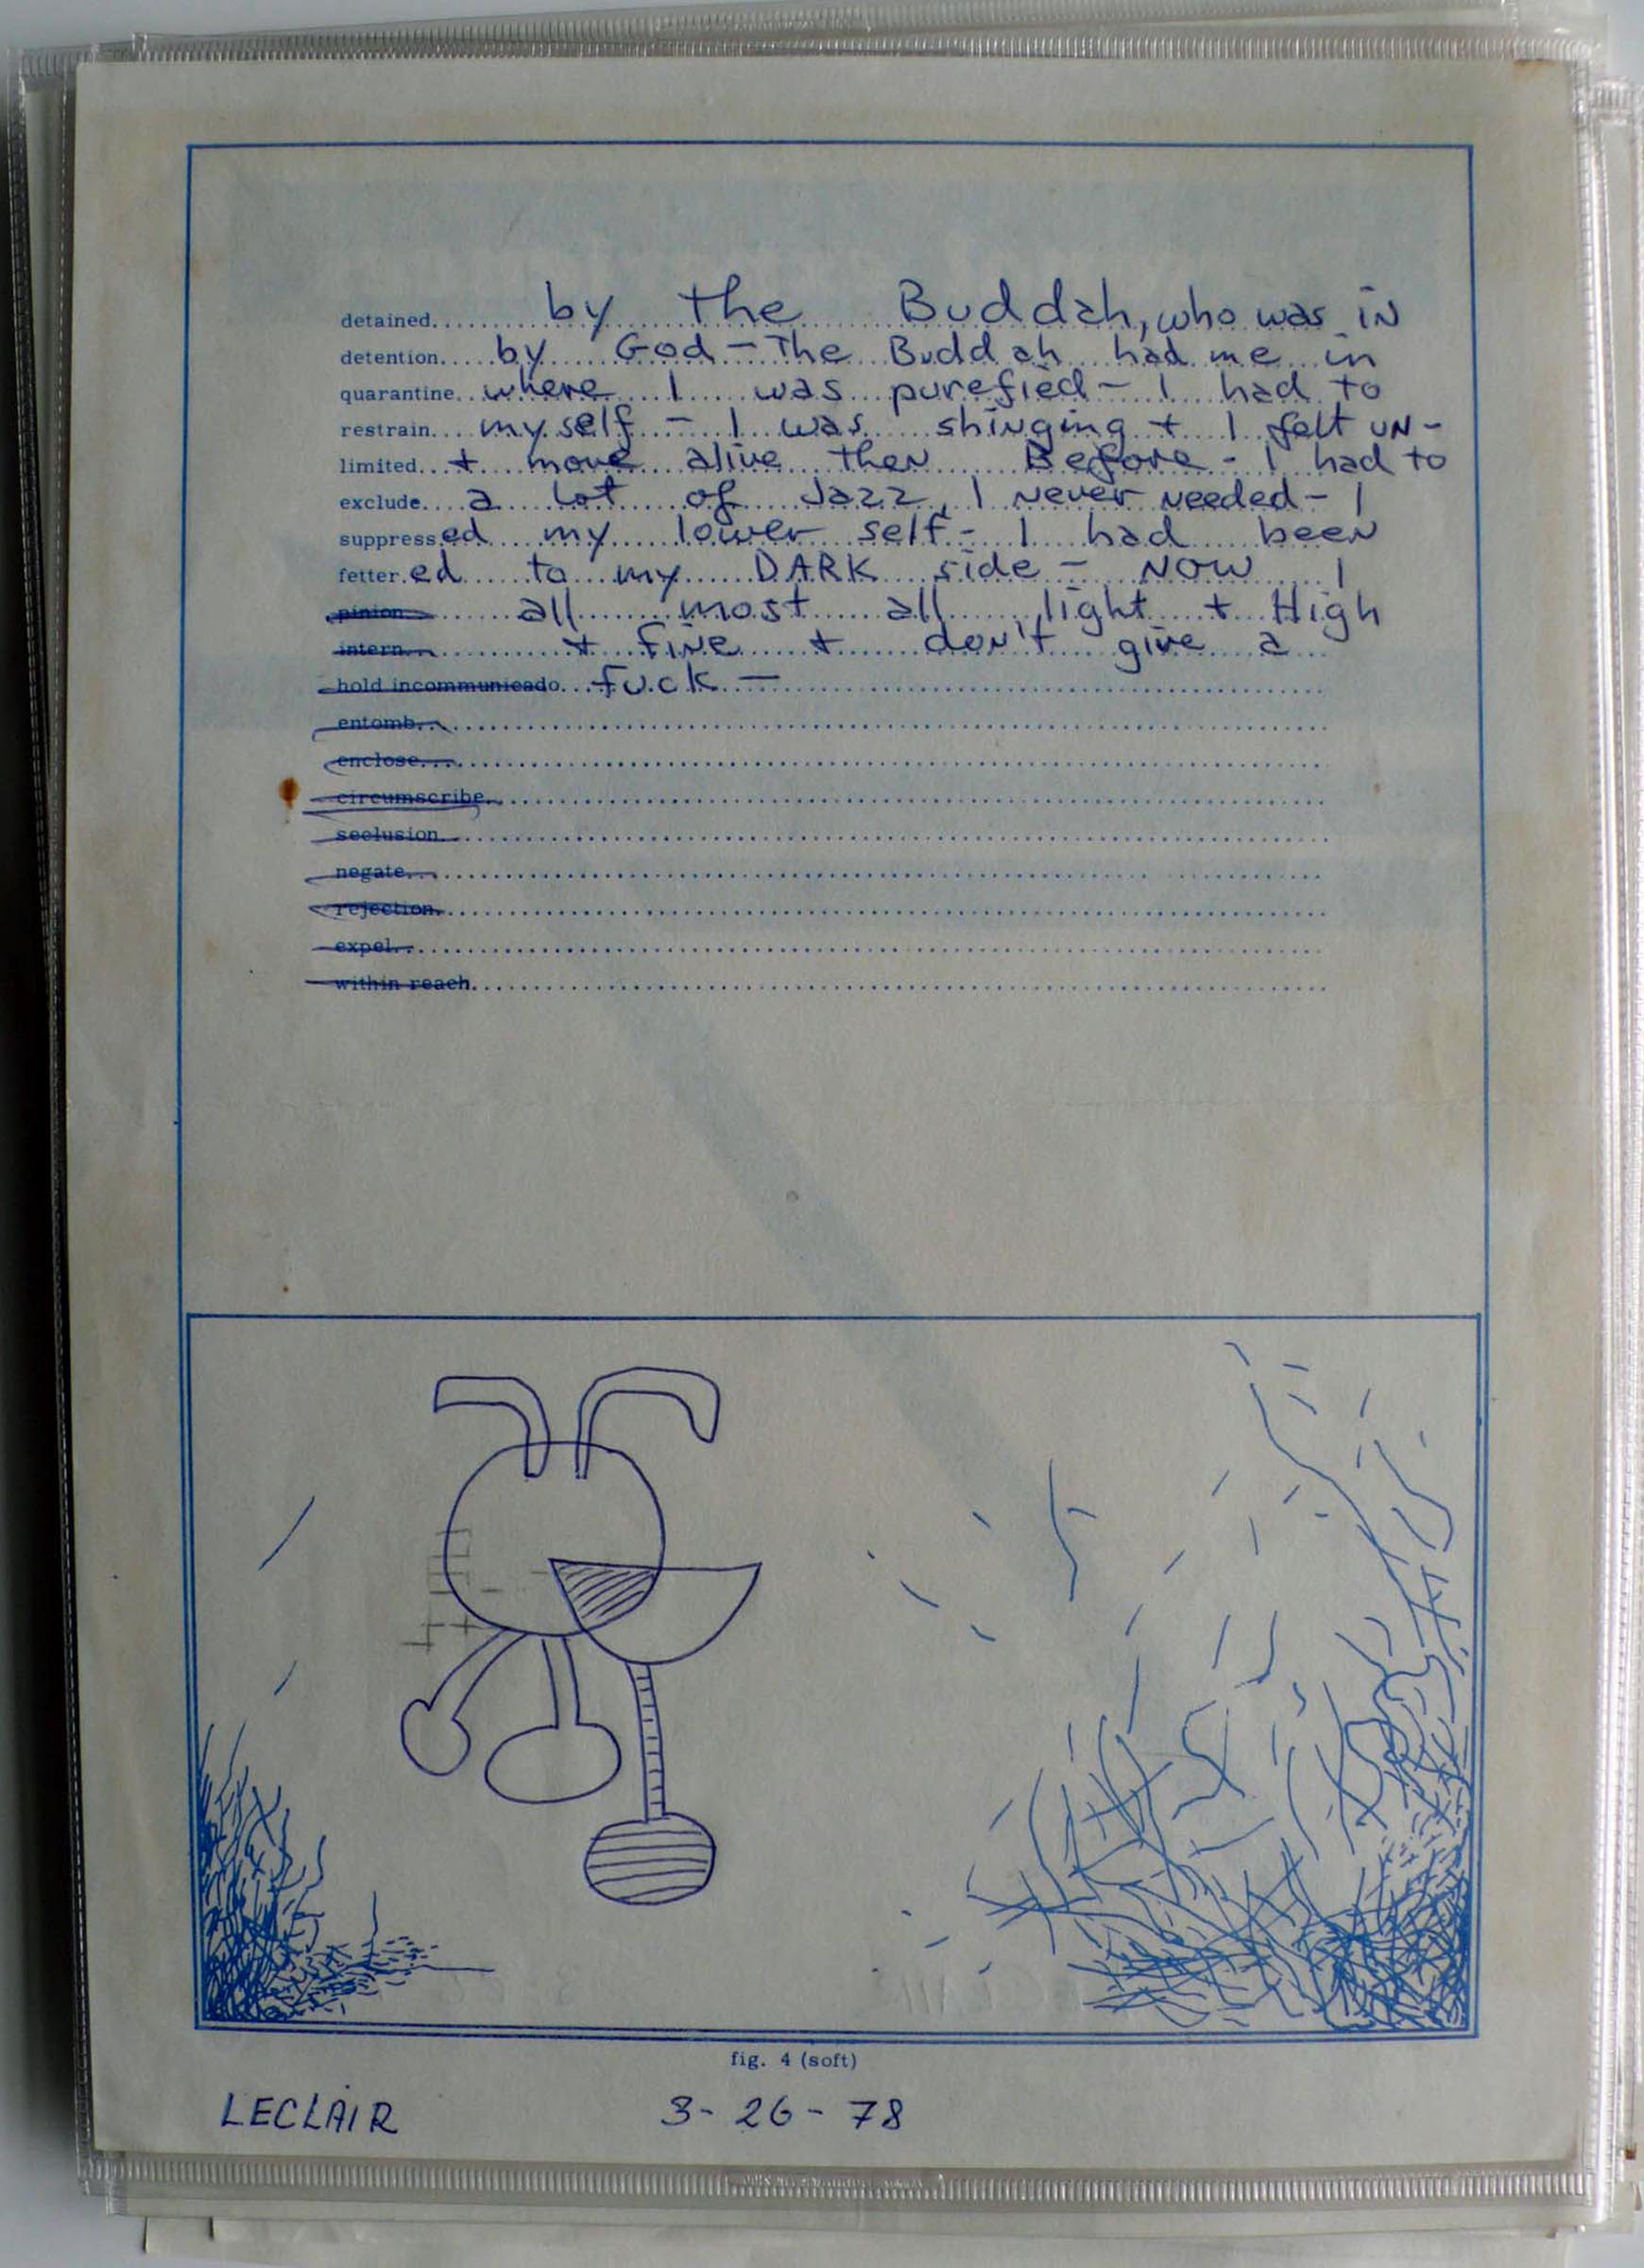 detained.......... by the Buddah, who was in
detention..... by God - The Buddah had me in
quarantine.. where I was purefied - I had to
restrain.... my self - I was shinging + I felt UN-
limited... + more alive then Before - I had to
exclude.... a lot of Jazz, I never needed - I
suppressed my lower self - I had been
fettered to my DARK side - NOW I
pinion all most all light + High
intern + fine + don't give a
hold incommunicado... fuck -
entomb
enclose
circumscribe
seclusion
negate
rejection
expel
within reach
fig. 4 (soft)
LECLAIR 3-26-78